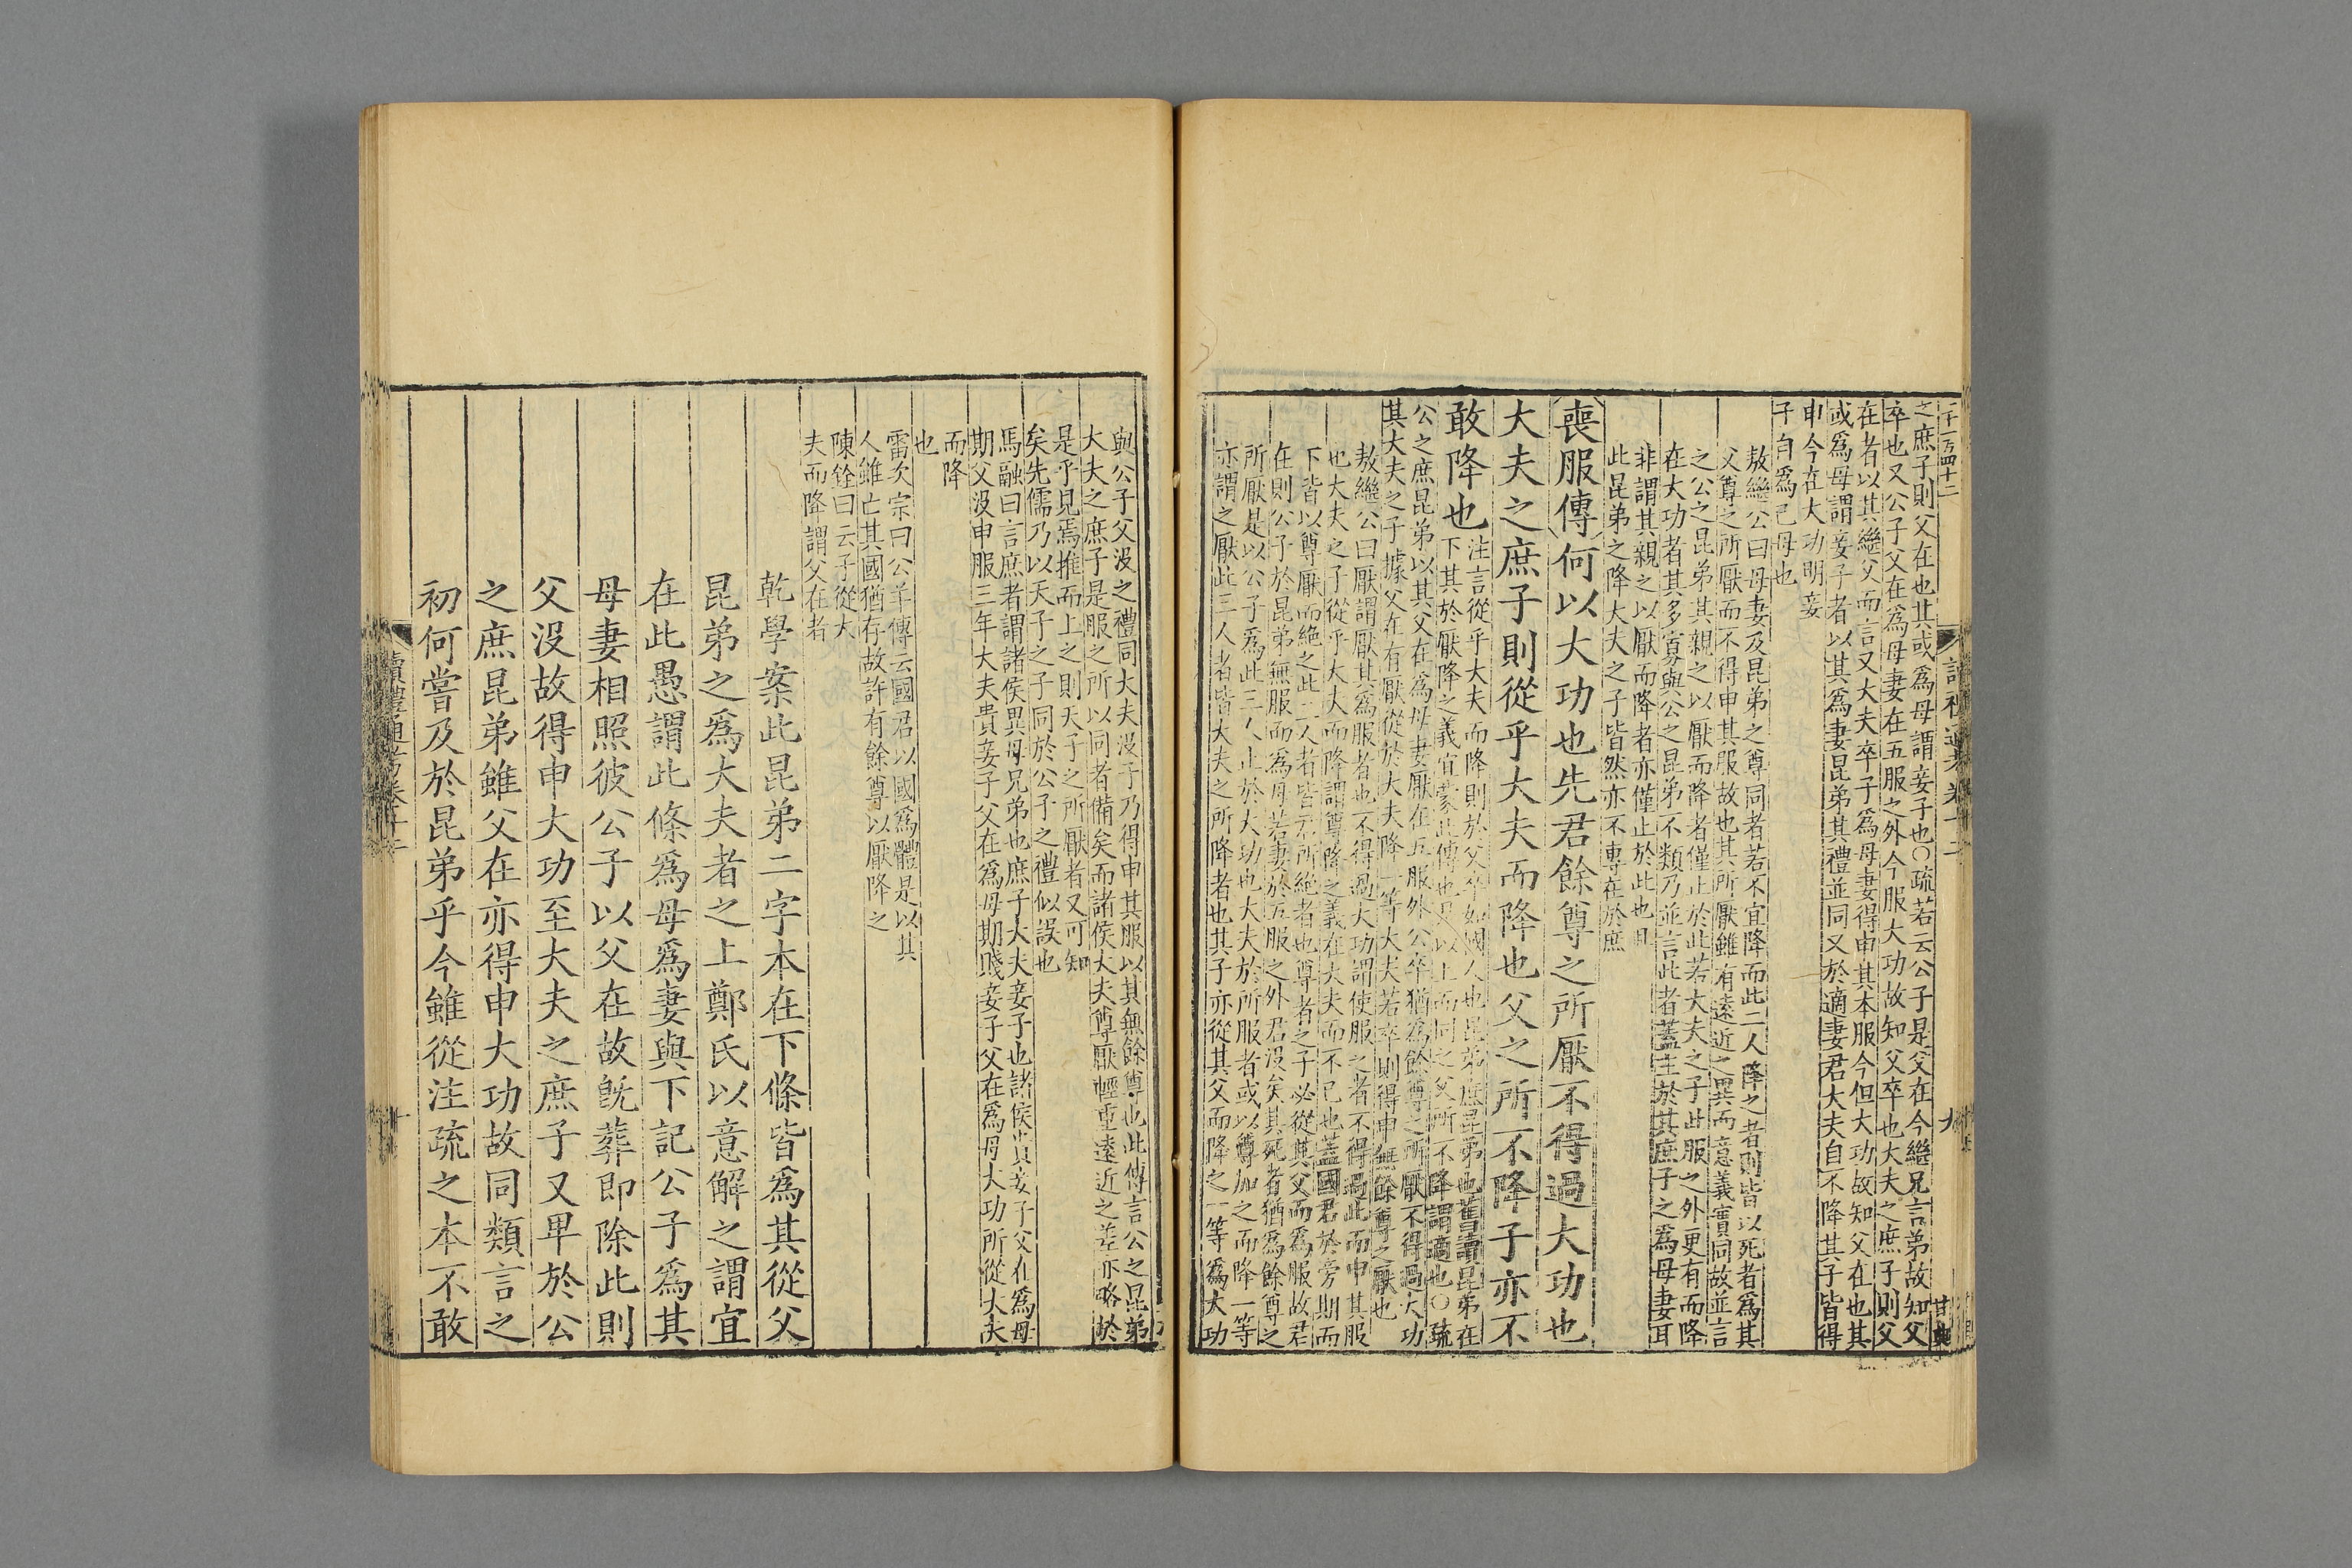 之庶子則父在也其或爲母謂妾子也○疏若云公子是父在今繼兄言弟故知父
卒也又公子父在爲母妻在五服之外今服大功故知父卒也大夫之庶子則父
在者以其繼父而言又大夫卒子爲母妻得申其本服今但大功故知父在也其
或爲母謂妾子者以其爲妻昆弟其禮並同又於適妻君大夫自不降其子皆得
申今在大功明妾
子自爲己母也
敖繼公曰母妻及昆弟之尊同者若不宜降而此二人降之者則皆以死者爲其
父尊之所厭而不得申其服故也其所厭雖有遠近之異而意義實同故並言
之公之昆弟其親之以厭而降者僅止於此若大夫之子此服之外更有而降
在大功者其多寡與公之昆弟不類乃並言此者蓋主於其庶子之爲母妻耳
非謂其親之以厭而降者亦僅止於此也且
此昆弟之降大夫之子皆然亦不專在於庶
喪服傳何以大功也先君餘尊之所厭不得過大功也
大夫之庶子則從乎大夫而降也父之所不降子亦不
敢降也
注言從乎大夫而降則於父卒如國人也昆弟庶昆弟也舊讀昆弟在
下其於厭降之義宜蒙此傳也是以上而同之父所不降謂適也○疏
公之庶昆弟以其父在爲母妻厭在五服外公卒猶爲餘尊之所厭不得過大功
其大夫之子據父在有厭從於大夫降一等大夫若卒則得申無餘尊之厭也
敖繼公曰厭謂厭其爲服者也不得過大功謂使服之者不得過此而申其服
也大夫之子從乎大夫而降謂尊降之義在大夫而不已也蓋國君於旁期而
下皆以尊厭而絶之此二人者皆君所絶者也尊者之子必從其父而爲服故君
在則公子於昆弟無服而爲母若妻於五服之外君沒矣其死者猶爲餘尊之
所厭是以公子爲此三人止於大功也大夫於所服者或以尊加之而降一等
亦謂之厭此三人者皆大夫之所降者也其子亦從其父而降之一等爲大功
與公子父沒之禮同大夫沒子乃得申其服以其無餘尊也此傳言公之昆弟
大夫之庶子是服之所以同者備矣而諸侯大夫尊厭輕重遠近之差亦略於
是乎見焉推而上之則天子之所厭者又可知
矣先儒乃以天子之子同於公子之禮似誤也
馬融曰言庶者謂諸侯異母兄弟也庶子大夫妾子也諸侯貴妾子父在爲母
期父沒申服三年大夫貴妾子父在爲母期賤妾子父在爲母大功所從大夫
而降
也
雷次宗曰公羊傳云國君以國爲體是以其
人雖亡其國猶存故許有餘尊以厭降之
陳銓曰云子從大
夫而降謂父在者
乾學案此昆弟二字本在下條皆爲其從父
昆弟之爲大夫者之上鄭氏以意解之謂宜
在此愚謂此條爲母爲妻與下記公子爲其
母妻相照彼公子以父在故旣葬卽除此則
父沒故得申大功至大夫之庶子又卑於公
之庶昆弟雖父在亦得申大功故同類言之
初何嘗及於昆弟乎今雖從注疏之本不敢
讀禮通考卷十二